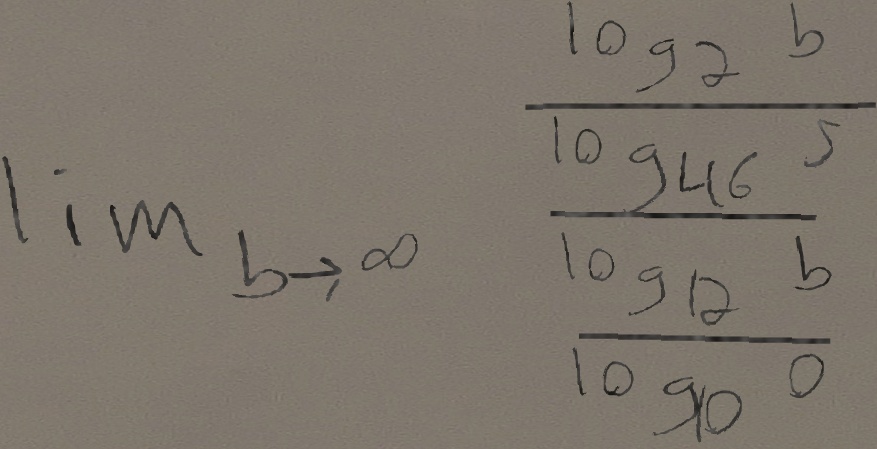 lim b→∞
log2 b
log46 5
log12 b
log10 0